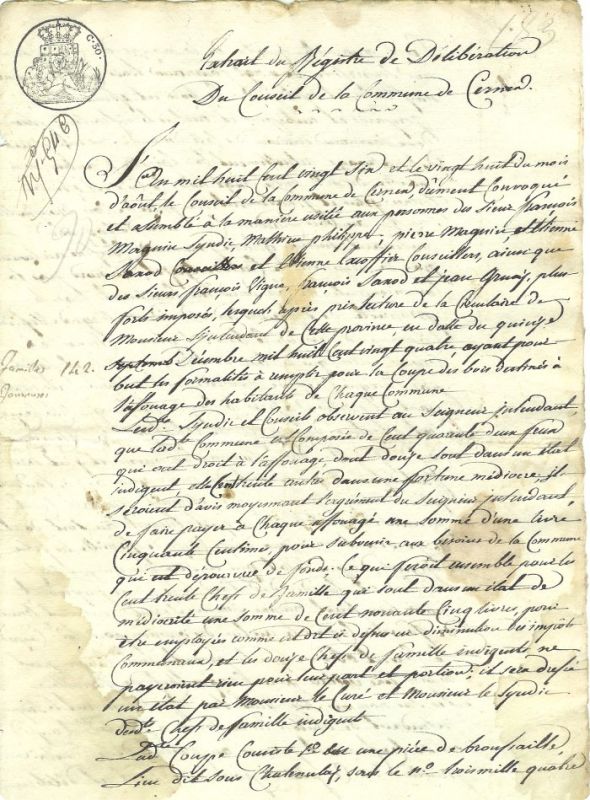 C. 50.
143
Extrait du Régistre de Délibération
Du Conseil de la Commune de Cernex.
L'an mil huit cent vingt six et le vingt huit du mois
d'août, le Conseil de la Commune de Cernex, dûment Convoqué
et assemblé à la manière usitée aux personnes des Sieur françois
Magnin Syndic, Mathieu philippe, pierre Magnin, et Etienne
et Etienne Conseillers, ainsi que
des Sieurs françois Vigne, françois et jean plus
forts imposés, lesquels après préclecture de la Circulaire de
Monsieur l'jntendant de Cette province, en date du quinze
septembre Décembre mil huit Cent vingt quatre, ayant pour
but les formalités à remplir pour la Coupe des bois destinés à
l'affouage des habitants de Chaque Commune
familles 142.
Lesdts Syndic et Conseils observent au Seigneur jntendant,
que ladte Commune est Composée de Cent quarante deux feux
qui ont droit à l'affouage, dont douze sont dans un état
indigent, et les Cent trente autres dans une fortune médiocre, il
seroient d'avis moyennant l'agrément du Seigneur jntendant,
de faire payer à Chaque affouagé une somme d'une livre
Cinquante Centimes, pour subvenir aux besoins de la Commune
qui est dépourvue de fonds. Ce qui feroit ensemble pour les
Cent trente Chefs de famille qui sont dans un état de
médiocrité une somme de Cent nonante Cinq livres, pour
être employée comme est dit ci dessus en diminution des impôts
Communaux, et les douze Chefs de famille indigents, ne
payeront rien pour leur part et portion; il sera dressé
un état par Monsieur le Curé et Monsieur le Syndic
desdts Chefs de famille indigent
Ladte Coupe Consiste en une pièce de broussaille,
Lieu dit sous sous le no. trois mille quatre